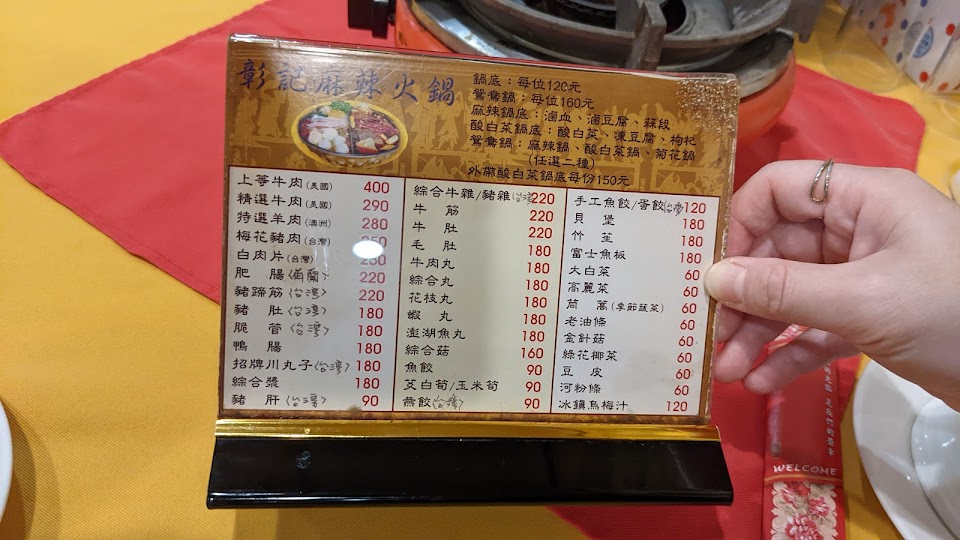 彰記麻辣火鍋
鍋底：每位120元
鴛鴦鍋：每位160元
麻辣鍋底：滷血、滷豆腐、蒜段
酸白菜鍋底：酸白菜、凍豆腐、枸杞
鴛鴦鍋：麻辣鍋、酸白菜鍋、菊花鍋
(任選二種)
外帶酸白菜鍋底每份150元
上等牛肉(美國) 400
精選牛肉(美國) 290
特選羊肉(澳洲) 280
梅花豬肉(台灣) 250
白肉片(台灣) 250
肥 腸 220
豬蹄筋(台灣) 220
豬 肚(台灣) 180
脆 管(台灣) 180
鴨 腸 180
招牌川丸子(台灣) 180
綜合漿 180
豬 肝(台灣) 90
綜合牛雜/豬雜(台灣) 220
牛 筋 220
牛 肚 220
毛 肚 180
牛肉丸 180
綜合丸 180
花枝丸 180
蝦 丸 180
澎湖魚丸 180
綜合菇 160
魚餃 90
茭白筍/玉米筍 90
燕餃(台灣) 90
手工魚餃/蛋餃(台灣) 120
貝 堡 180
竹 笙 180
富士魚板 180
大白菜 60
高麗菜 60
茼 蒿(季節蔬菜) 60
老油條 60
金針菇 60
綠花椰菜 60
豆 皮 60
河粉條 60
冰鎮烏梅汁 120
WELCOME